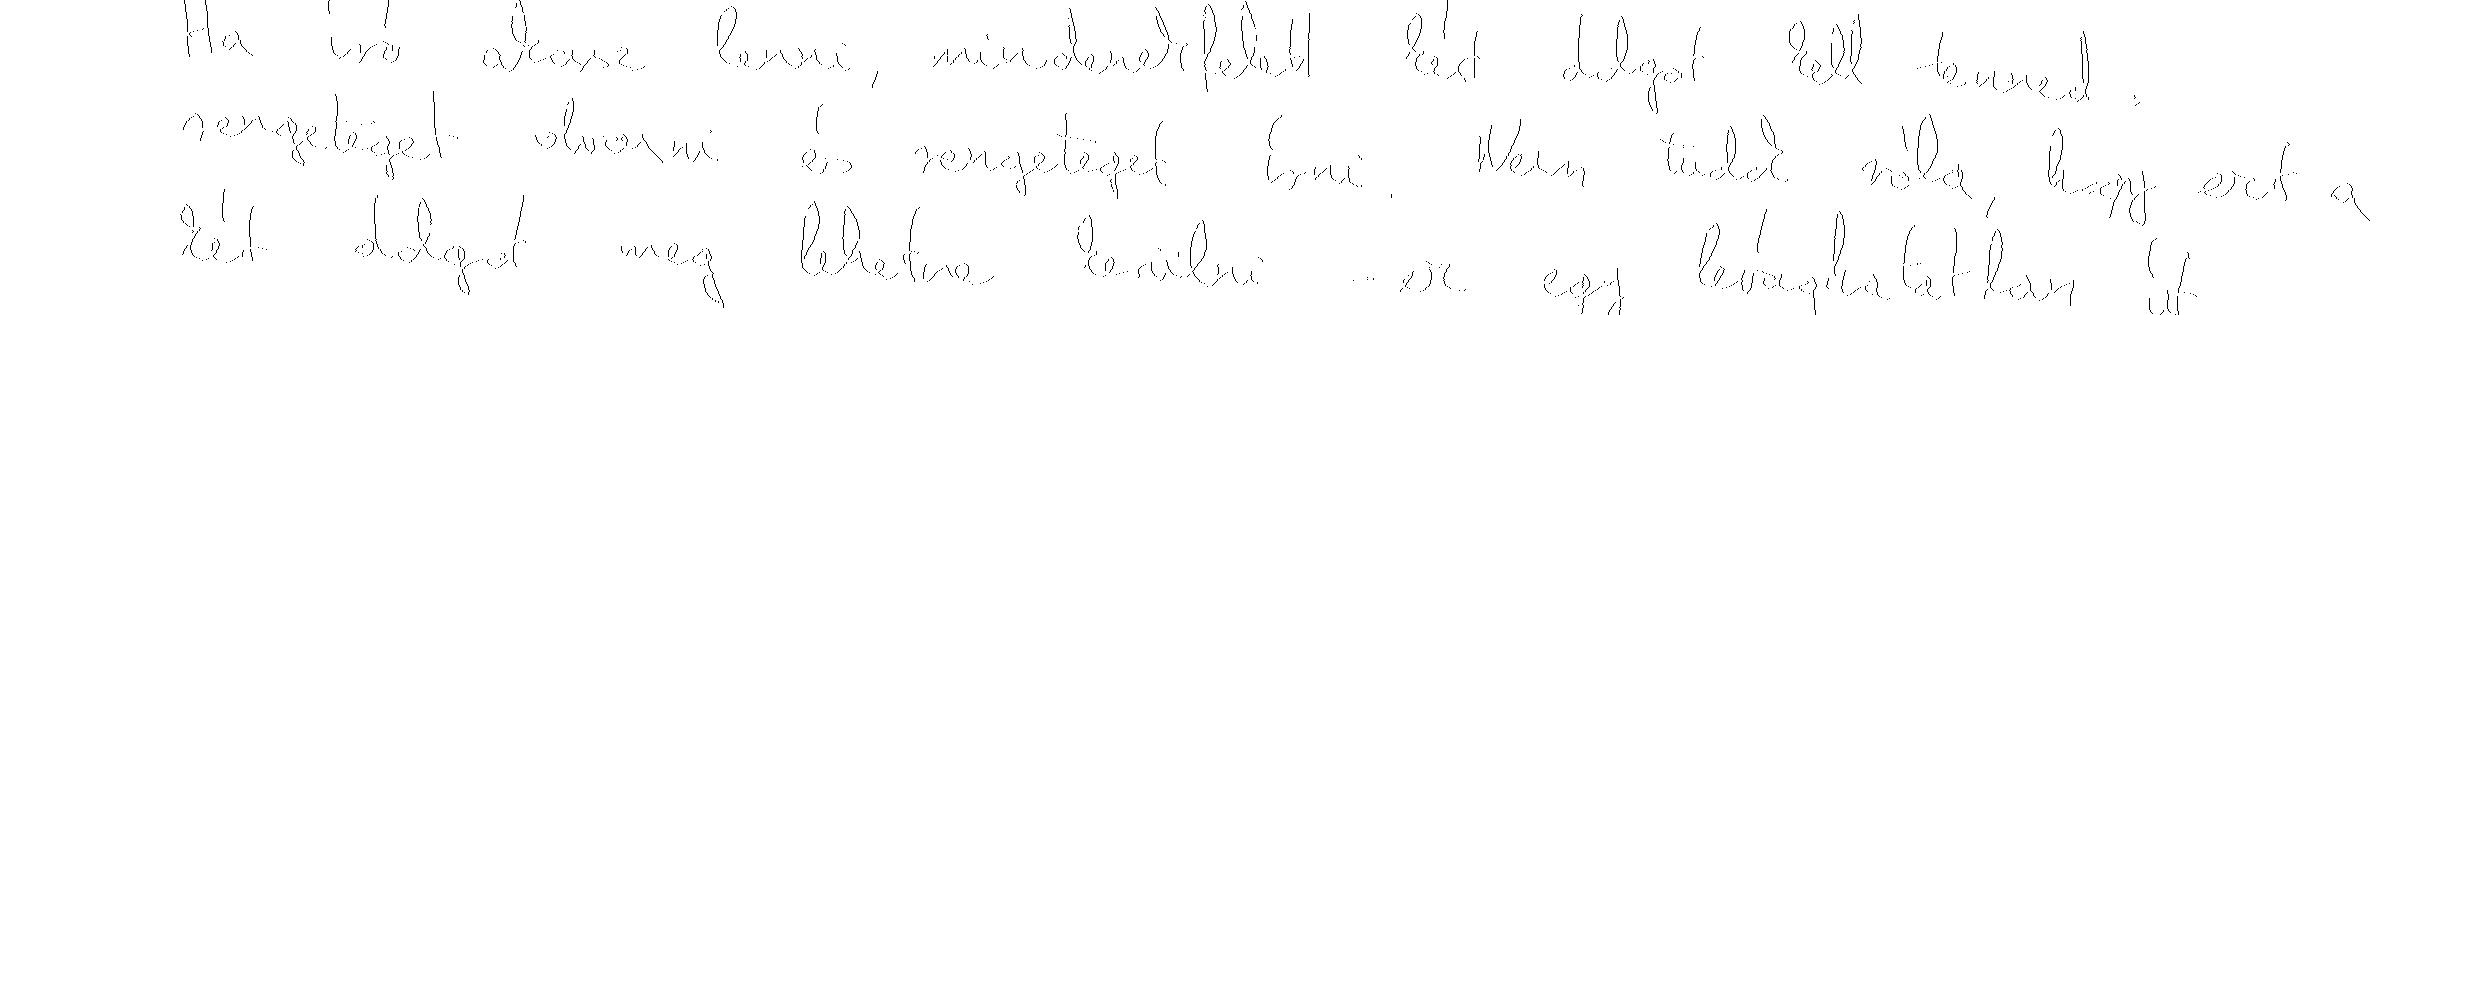 Ha író akarsz lenni, mindenekfelett két dolgot kell tenned:
rengeteget olvasni és rengeteget írni. Nem tudok róla, hogy ezt a
két dolgot meg lehetne kerülni - ez egy levághatatlan út